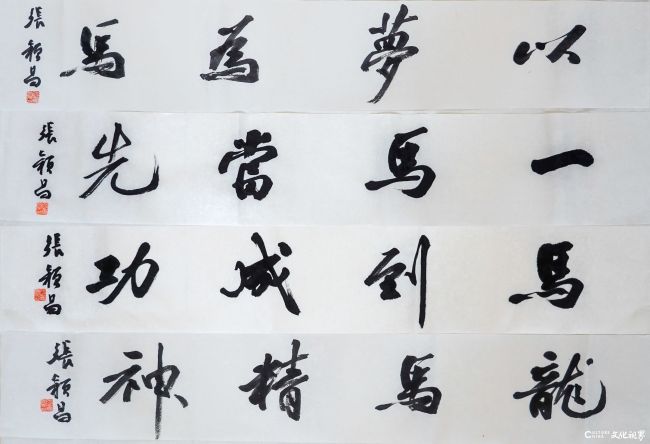 以夢為馬
張穎昌
一馬當先
張穎昌
馬到成功
張穎昌
龍馬精神
張穎昌
文化視界